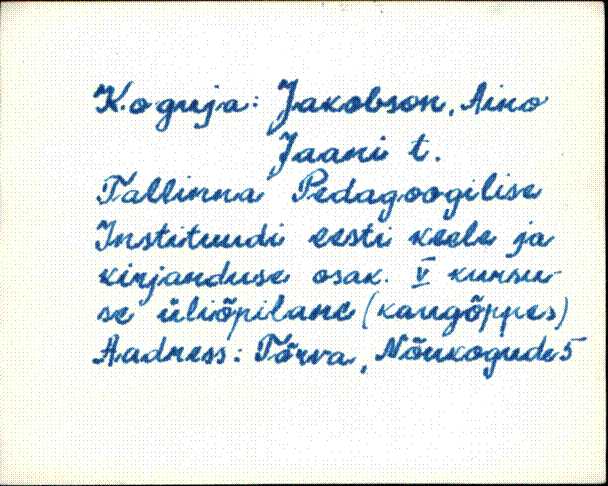 Koguja: Jakobson, Aino
Jaani t.
Tallinna Pedagoogilise
Instituudi eesti keele ja
kirjanduse osak. V kursu-
se üliõpilane (kaugõppes)
Aadress: Tõrva, Nõukogude 5